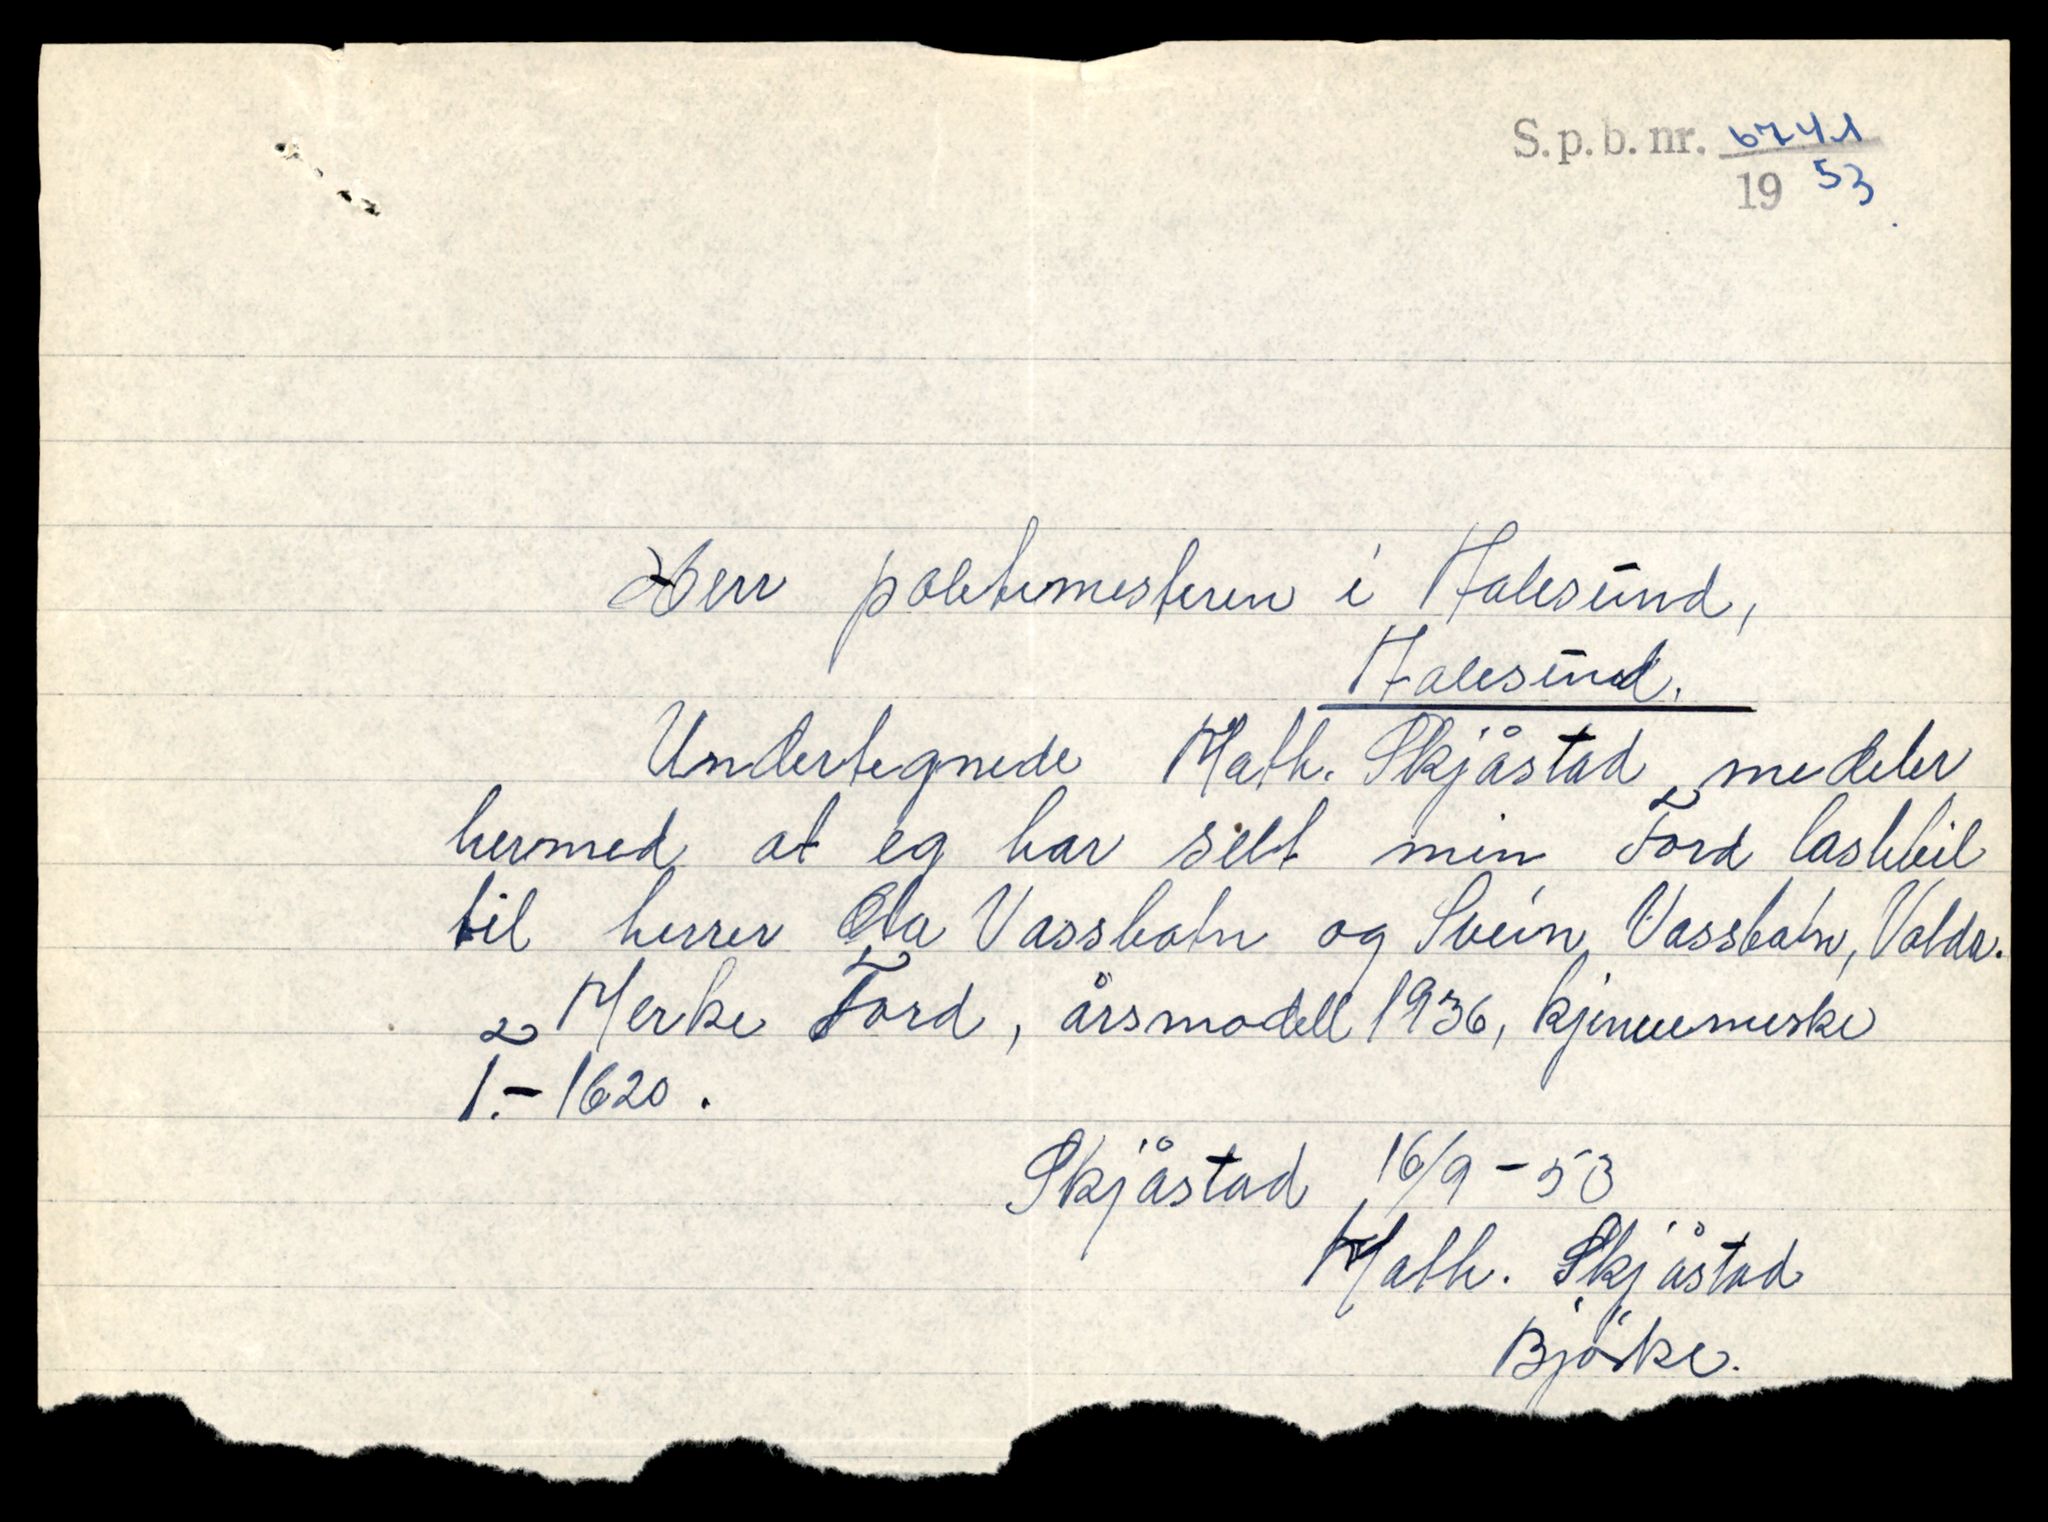 S. p. b. nr. 6741
19 53
Herr politimesteren i Aalesund,
Aalesund.
Undertegnede Math. Skjåstad medeler
hermed at eg har selt min Ford lastebil
til herrer Ola Vassbotn og Svein Vassbotn, Volda.
Merke Ford, årsmodell 1936, kjennemerke
1.- 1620.
Skjåstad 16/9 - 53
Math. Skjåstad
Björke.